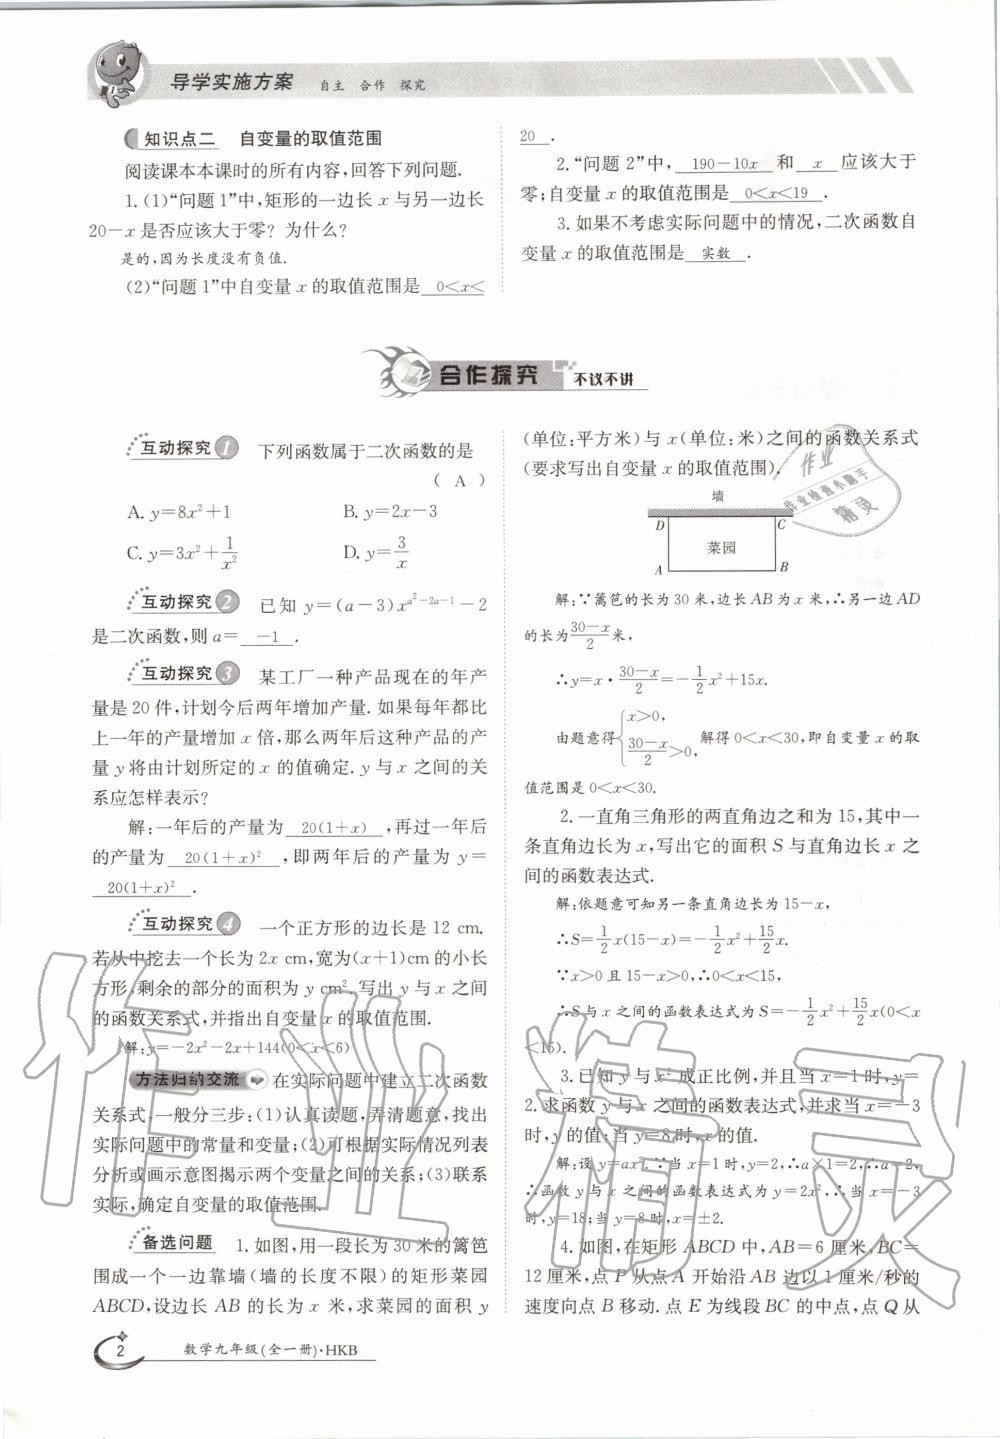 导学实施方案 自主 合作 探究
知识点二 自变量的取值范围
阅读课本本课时的所有内容,回答下列问题.
1.(1)“问题1”中,矩形的一边长x与另一边长
20-x是否应该大于零? 为什么?
是的,因为长度没有负值.
(2)“问题1”中自变量x的取值范围是 0<x<
20 .
2.“问题2”中, 190-10x 和 x 应该大于
零;自变量x的取值范围是 0<x<19 .
3.如果不考虑实际问题中的情况,二次函数自
变量x的取值范围是 实数 .
合作探究 不议不讲
互动探究1 下列函数属于二次函数的是
( A )
A. y=8x²+1 B. y=2x-3
C. y=3x²+1/x² D. y=3/x
互动探究2 已知 y=(a-3)x^(a²-2a-1)-2
是二次函数,则a= -1 .
互动探究3 某工厂一种产品现在的年产
量是20件,计划今后两年增加产量.如果每年都比
上一年的产量增加x倍,那么两年后这种产品的产
量y将由计划所定的x的值确定.y与x之间的关
系应怎样表示?
解:一年后的产量为 20(1+x) ,再过一年后
的产量为 20(1+x)² ,即两年后的产量为y=
20(1+x)² .
互动探究4 一个正方形的边长是12 cm.
若从中挖去一个长为2x cm,宽为(x+1)cm的小长
方形,剩余的部分的面积为y cm².写出y与x之间
的函数关系式,并指出自变量x的取值范围.
解:y=-2x²-2x+144(0<x<6)
方法归纳交流 在实际问题中建立二次函数
关系式,一般分三步:(1)认真读题,弄清题意,找出
实际问题中的常量和变量;(2)可根据实际情况列表
分析或画示意图揭示两个变量之间的关系;(3)联系
实际,确定自变量的取值范围.
备选问题 1.如图,用一段长为30米的篱笆
围成一个一边靠墙(墙的长度不限)的矩形菜园
ABCD,设边长AB的长为x米,求菜园的面积y
(单位:平方米)与x(单位:米)之间的函数关系式
(要求写出自变量x的取值范围).
墙
D C
菜园
A B
解:∵篱笆的长为30米,边长AB为x米,∴另一边AD
的长为(30-x)/2米,
∴y=x·(30-x)/2=-1/2x²+15x.
由题意得{x>0, (30-x)/2>0, 解得0<x<30,即自变量x的取
值范围是0<x<30.
2.一直角三角形的两直角边之和为15,其中一
条直角边长为x,写出它的面积S与直角边长x之
间的函数表达式.
解:依题意可知另一条直角边长为15-x,
∴S=1/2x(15-x)=-1/2x²+15/2x.
∵x>0且15-x>0,∴0<x<15,
∴S与x之间的函数表达式为S=-1/2x²+15/2x(0<x
<15).
3.已知y与x²成正比例,并且当x=1时,y=
2.求函数y与x之间的函数表达式,并求当x=-3
时,y的值;当y=8时,x的值.
解:设y=ax².∵当x=1时,y=2,∴a×1=2,∴a=2,
∴函数y与x之间的函数表达式为y=2x²,∴当x=-3
时,y=18;当y=8时,x=±2.
4.如图,在矩形ABCD中,AB=6厘米,BC=
12厘米,点P从点A开始沿AB边以1厘米/秒的
速度向点B移动.点E为线段BC的中点,点Q从
2 数学九年级(全一册)·HKB
作业精灵
作业
作业检查小助手
精灵